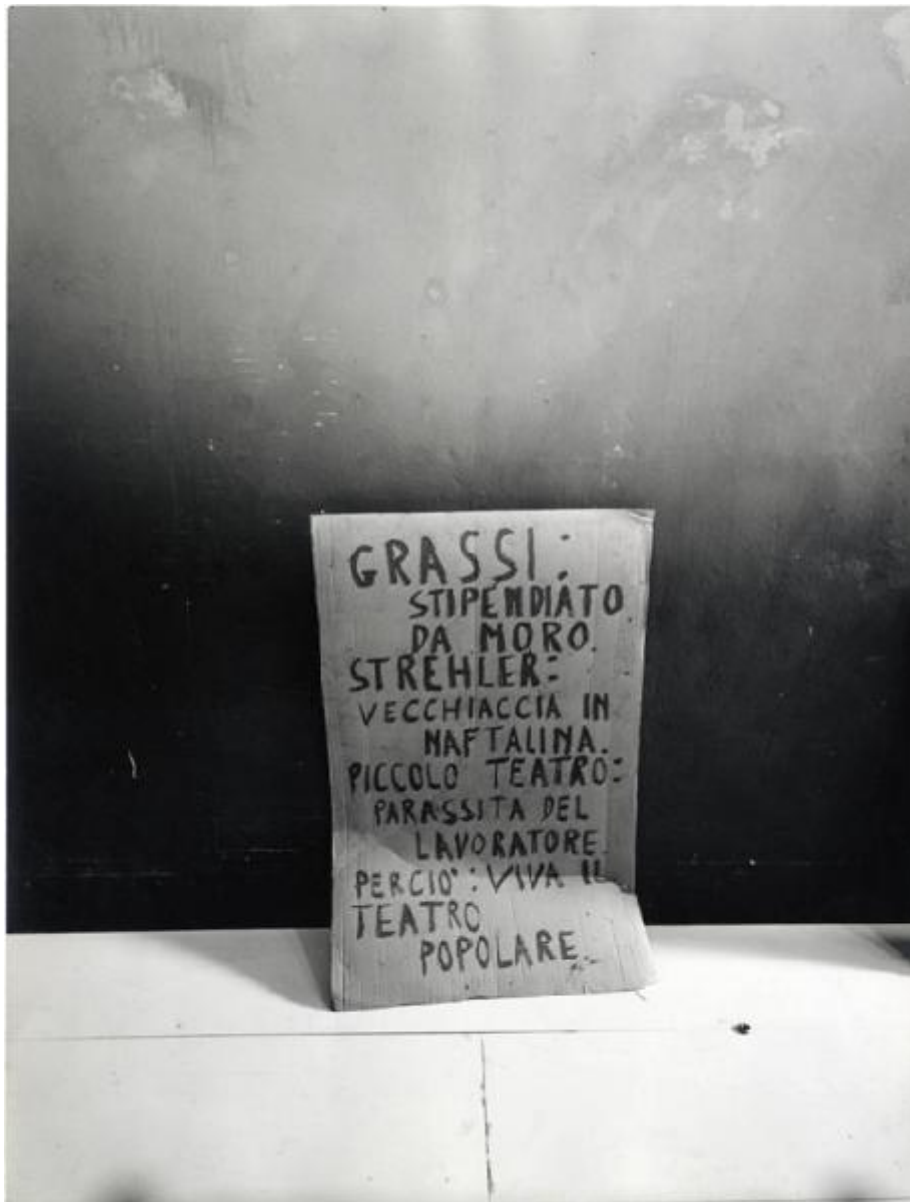 GRASSI:
STIPENDIATO
DA MORO.
STREHLER:
VECCHIACCIA IN
NAFTALINA.
PICCOLO TEATRO:
PARASSITA DEL
LAVORATORE.
PERCIO': VIVA IL
TEATRO
POPOLARE.